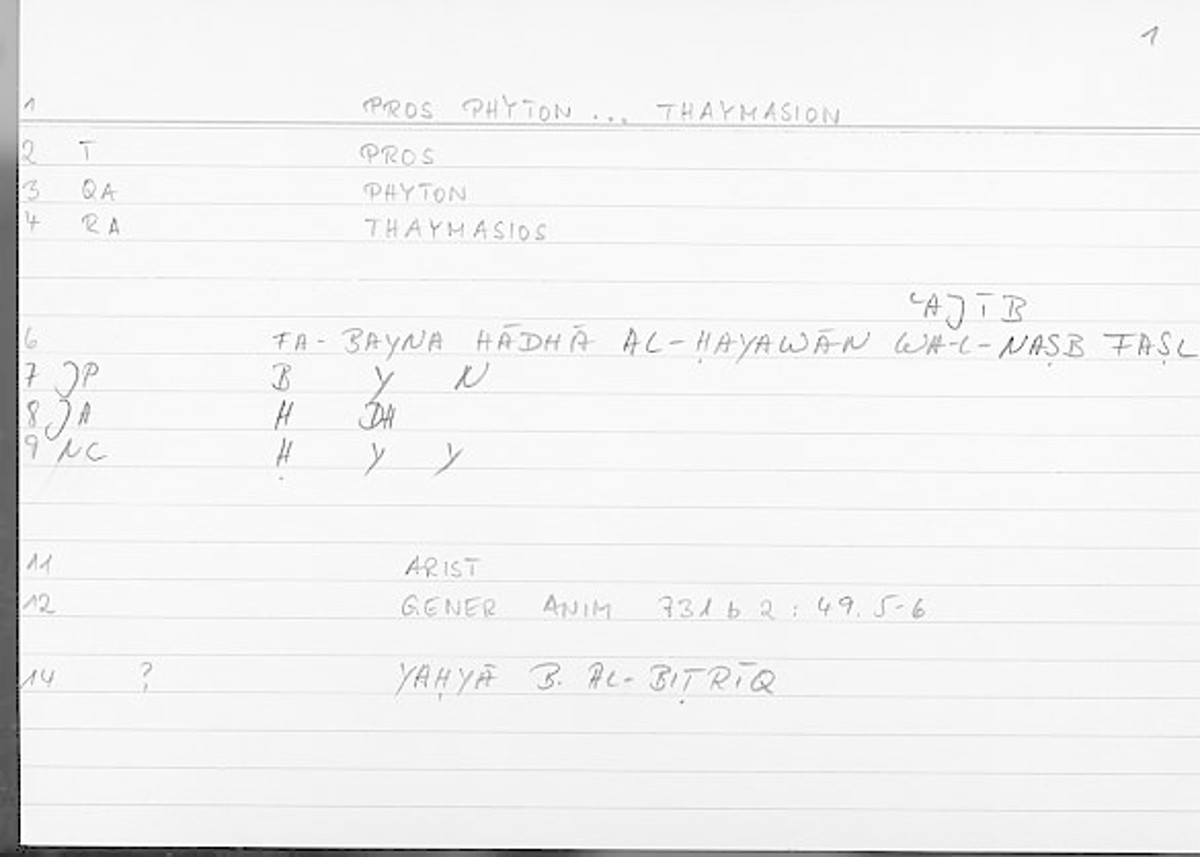 1
1 PROS PHYTON ... THAYMASION
2 T PROS
3 QA PHYTON
4 RA THAYMASIOS
ʿAJĪB
6 FA- BAYNA HĀDHĀ AL-ḤAYAWĀN WA-L-NAṢB FAṢL
7 JP B Y N
8 JA H DH
9 NC Ḥ Y Y
11 ARIST
12 GENER ANIM 731 b 2 : 49. 5-6
14 ? YAḤYĀ B. AL-BIṬRĪQ